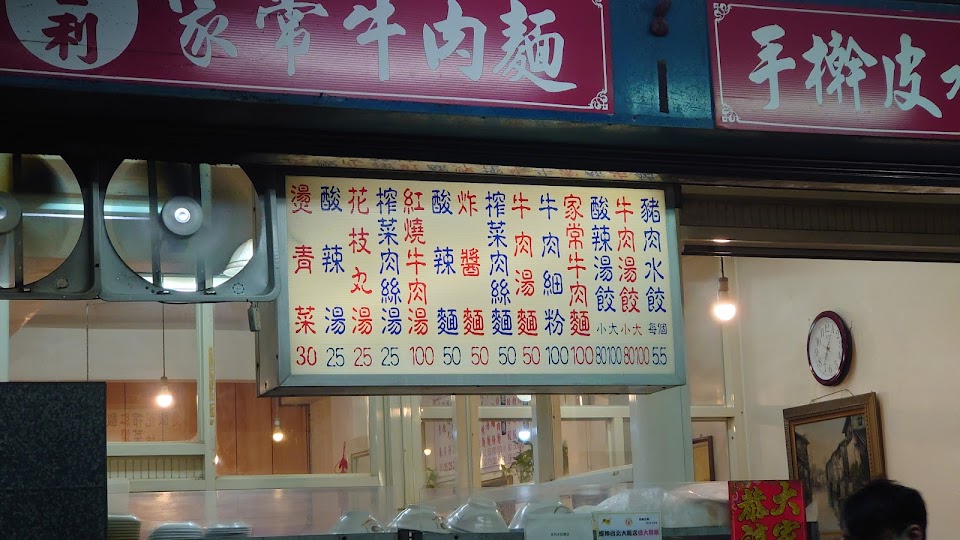 利
家常牛肉麵
手擀皮水
豬肉水餃 每個 55
牛肉湯餃 小大 80100
酸辣湯餃 小大 80100
家常牛肉麵 100
牛肉細粉 100
牛肉湯麵 50
榨菜肉絲麵 50
炸醬麵 50
酸辣麵 50
紅燒牛肉湯 100
榨菜肉絲湯 25
花枝丸湯 25
酸辣湯 25
燙青菜 30